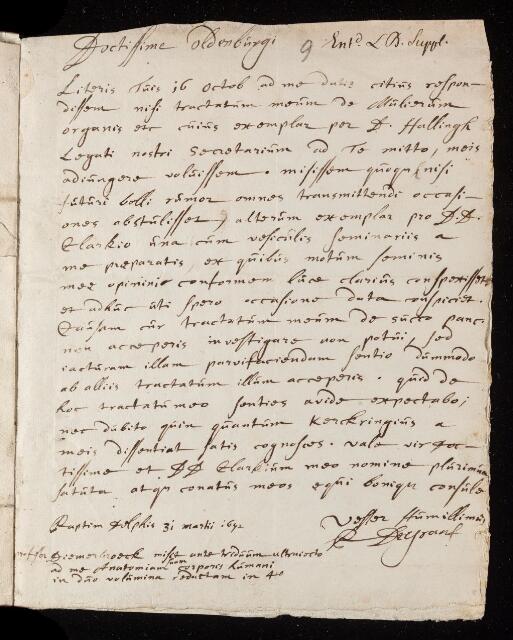 Doctissime Oldenburgi 9 Entd L B. Suppl.
Literis Tuis 16 octob ad me datis citius respon-
dissem nisi tractatum meum de Mulierum
organis etc cuius exemplar per D. Hallingh
Legati nostri Secretarium ad Te mitto, meis
adiungere voluissem. misissem quoque (nisi
futuri belli rumor omnes transmittendi occasi-
ones abstulisset) alterum exemplar pro D.D.
Clarkio una cum vesiculis seminariis a
me praeparatis, ex quibus motum seminis
meae opinioni conformem luce clarius conspexisset
et adhuc uti spero occasione data conspiciet.
Causam cur tractatum meum de succo panc.
non acceperis investigare non potui, sed
iacturam illam parvifaciendam sentio dummodo
ab aliis tractatum illum acceperis. quid de
hoc tractatu meo senties avide expectabo;
nec dubito quin quantum Kerckringius a
meis dissentiat satis cognosces. vale vir doc-
tissime et DD Clarkium meo nomine plurimum
saluta atque conatus meos equi bonique consule
Raptim Delphis 31 martii 1672
Vester Humillimus
R DeGraaf
Diemerbroeck misit ante triduum ultraiecto
ad me Anatomiam suam corporis humani
in duo volumina redactam in 4o